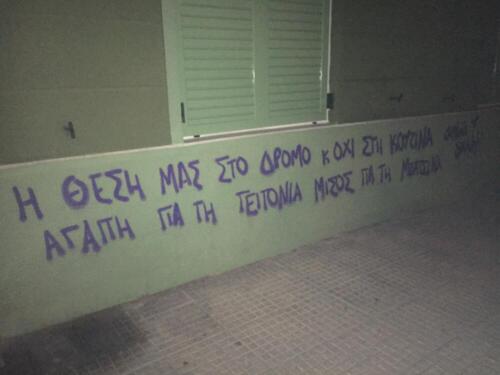 Η ΘΕΣΗ ΜΑΣ ΣΤΟ ΔΡΟΜΟ κ ΟΧΙ ΣΤΗ ΚΟΥΖΙΝΑ
ΑΓΑΠΗ ΓΙΑ ΤΗ ΓΕΙΤΟΝΙΑ ΜΙΣΟΣ ΓΙΑ ΤΗ ΜΠΑΤΣΙΝΑ